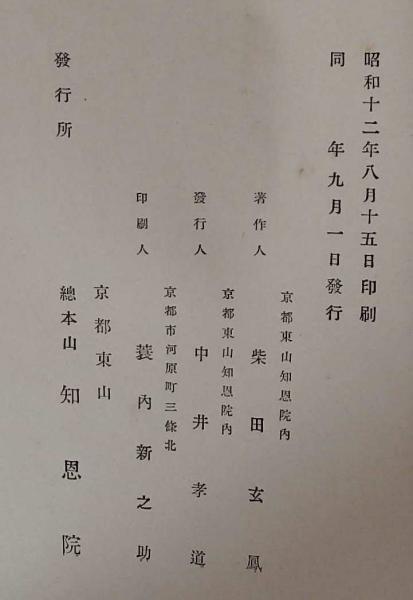 昭和十二年八月十五日印刷
同　　年九月一日發行
京都東山知恩院內
著作人　柴田玄鳳
京都東山知恩院內
發行人　中井孝道
京都市河原町三條北
印刷人　蓑內新之助
京都東山
發行所　總本山　知恩院